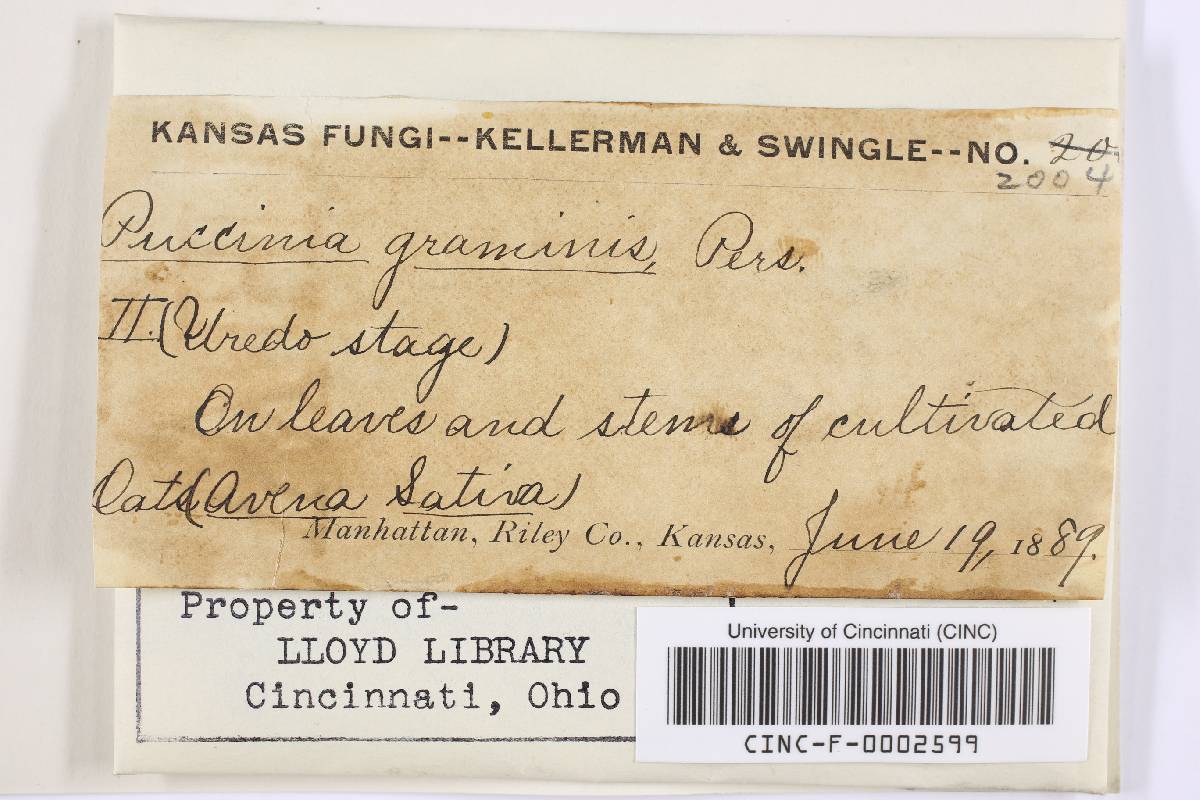 KANSAS FUNGI--KELLERMAN & SWINGLE--NO. 20
2004
Puccinia graminis, Pers.
II. (Uredo stage)
On leaves and stems of cultivated
Oats (Avena Sativa)
Manhattan, Riley Co., Kansas, June 19, 1889.
Property of-
LLOYD LIBRARY
Cincinnati, Ohio
University of Cincinnati (CINC)
CINC-F-0002599